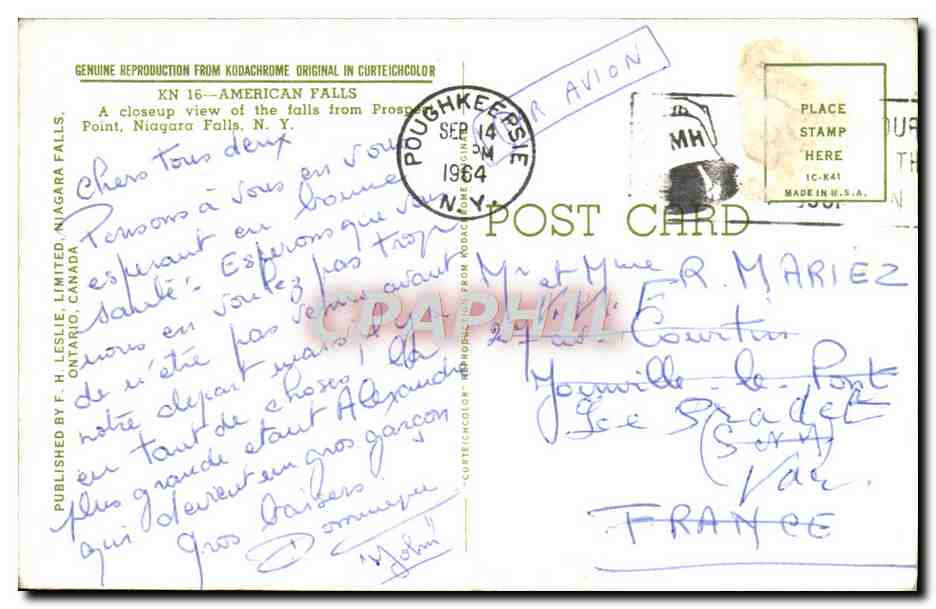 GENUINE REPRODUCTION FROM KODACHROME ORIGINAL IN CURTEICHCOLOR
KN 16—AMERICAN FALLS
A closeup view of the falls from Prospect
Point, Niagara Falls, N. Y.
PUBLISHED BY F. H. LESLIE, LIMITED, NIAGARA FALLS,
ONTARIO, CANADA
Chers tous deux
Pensons à vous en vous
esperant en bonne
santé. Esperons que vous
nous en voulez pas trop
de n'être pas venu avant
notre depart mais il y a
en tant de choses, la
plus grande etant Alexandre
qui devient un gros garçon
gros baisers
Dominique
"John"
"CURTEICHCOLOR" REPRODUCTION FROM KODACHROME ORIGINAL
POUGHKEEPSIE
SEP 14
PM
1964
N.Y.
PAR AVION
MH
PLACE
STAMP
HERE
IC-K41
MADE IN U.S.A.
POST CARD
Mr et Mme R. MARIEZ
Courtin
Joinville-le-Pont
Le Pradet
Var
FRANCE
CPAPHIL